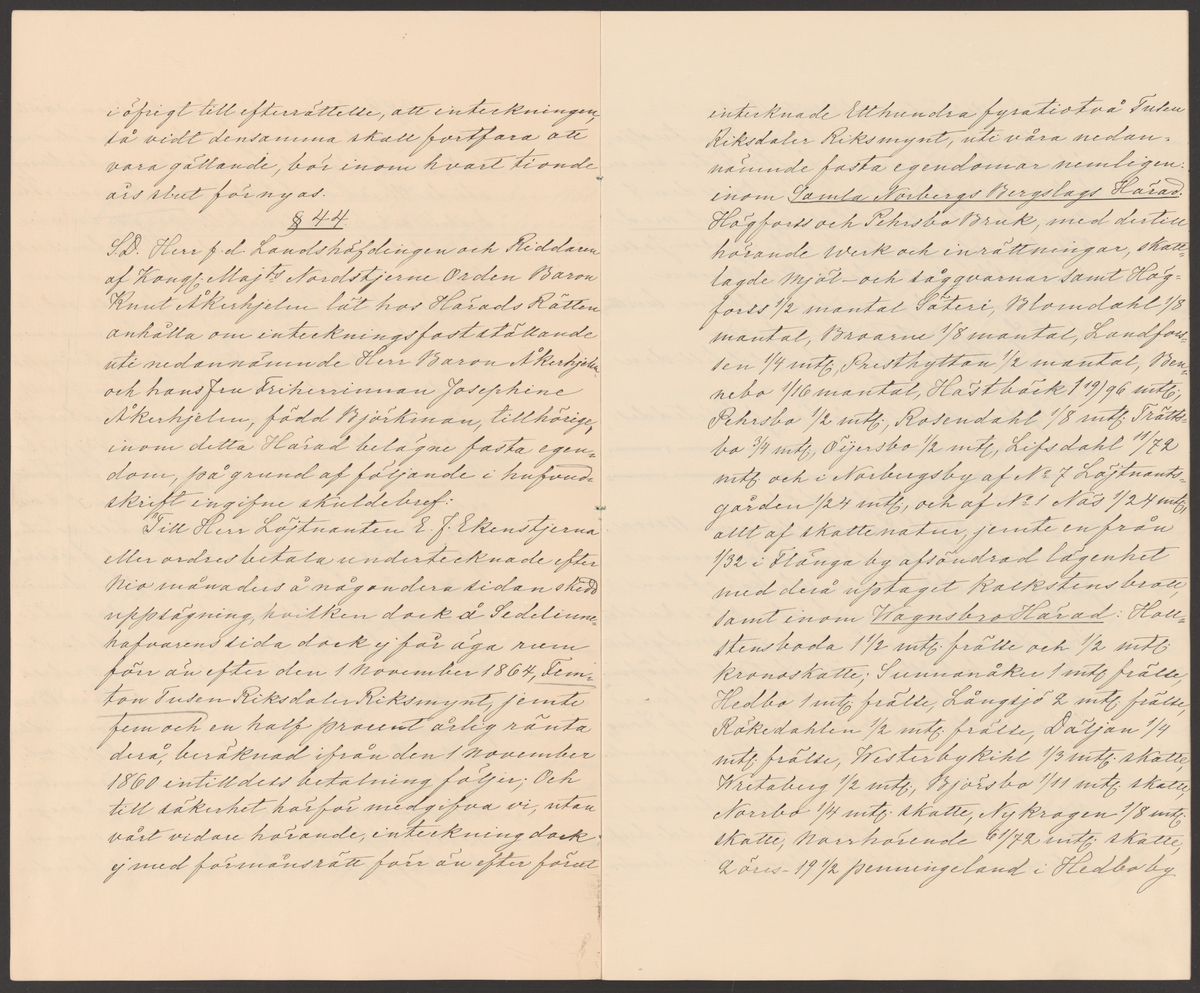 i öfrigt till efterrättelse, att inteckningen,
så vidt densamma skall fortfara att
vara gällande, bör inom hvart tionde
års slut förnyas.
§ 44.
S.D. Herr f.d Landshöfdingen och Riddaren
af Kongl. Maj:ts Nordstjerne Orden Baron
Knut Åkerhjelm lät hos Härads Rätten
anhålla om inteckningsfastställande
uti nedannämnde Herr Baron Åkerhjelm
och hans fru Friherrinnan Josephine
Åkerhjelm, född Björkman, tillhörige,
inom detta Härad belägne fasta egen-
dom, på grund af följande i hufvud-
skrift ingifne skuldebref:
Till Herr Löjtnanten E. J. Ekenstjerna
eller ordres betala undertecknade efter
Nio månaders å någondera sidan skedd
uppsägning, hvilken dock å Sedelinne-
hafvarens sida dock ej får äga rum
förr än efter den 1 November 1864, Fem-
ton Tusen Riksdaler Riksmynt, jemte
fem och en half procent årlig ränta
derå, beräknad ifrån den 1 November
1860 intill dets betalning följer; Och
till säkerhet härför medgifva vi, utan
vårt vidare hörande, inteckning dock
ej med förmånsrätt förr än efter förut
intecknade Etthundra fyratiotvå Tusen
Riksdaler Riksmynt, uti våra nedan-
nämnde fasta egendomar nemligen:
inom Gamla Norbergs Bergslags Härad:
Högfors och Pehrsbo Bruk, med dertill
hörande verk och inrättningar, skatt-
lagde mjöl- och sågqvarnar samt Hög-
fors 1/2 mantal Säteri, Blomdahl 1/8
mantal, Broarne 1/8 mantal, Landfors-
sen 1/4 mtl, Presthyttan 1/2 mantal, Ben-
nebo 1/16 mantal, Hästbäck 1 19/96 mtl,
Pehrsbo 1/2 mtl, Rosendahl 1/8 mtl, Trätts-
bo 3/4 mtl, Öijersbo 1/2 mtl, Lifsdahl 11/72
mtl och i Norbergsby af No 7 Löjtnants-
gården 1/24 mtl, och af No 1 Näs 1/24 mtl,
allt af skattenatur, jemte en från
1/32 i Flänga by afsöndrad lägenhet
med derå uptaget Kalkstensbrott,
samt inom Wagnsbro Härad: Hall-
stensboda 1 1/2 mtl frälse och 1/2 mtl
kronoskatte; Sunnanåker 1 mtl frälse,
Hedbo 1 mtl frälse, Långsjö 2 mtl frälse,
Rökedahlen 1/2 mtl frälse, Däljan 1/4
mtl frälse, Westerbykihl 1/3 mtl skatte,
Kretaberg 1/2 mtl, Björsbo 1/11 mtl skatte,
Norrbo 1/4 mtl skatte, Nykrogen 1/8 mtl
skatte, Norrhörende 61/72 mtl skatte,
2 öres- 19 1/2 penningeland i Hedboby